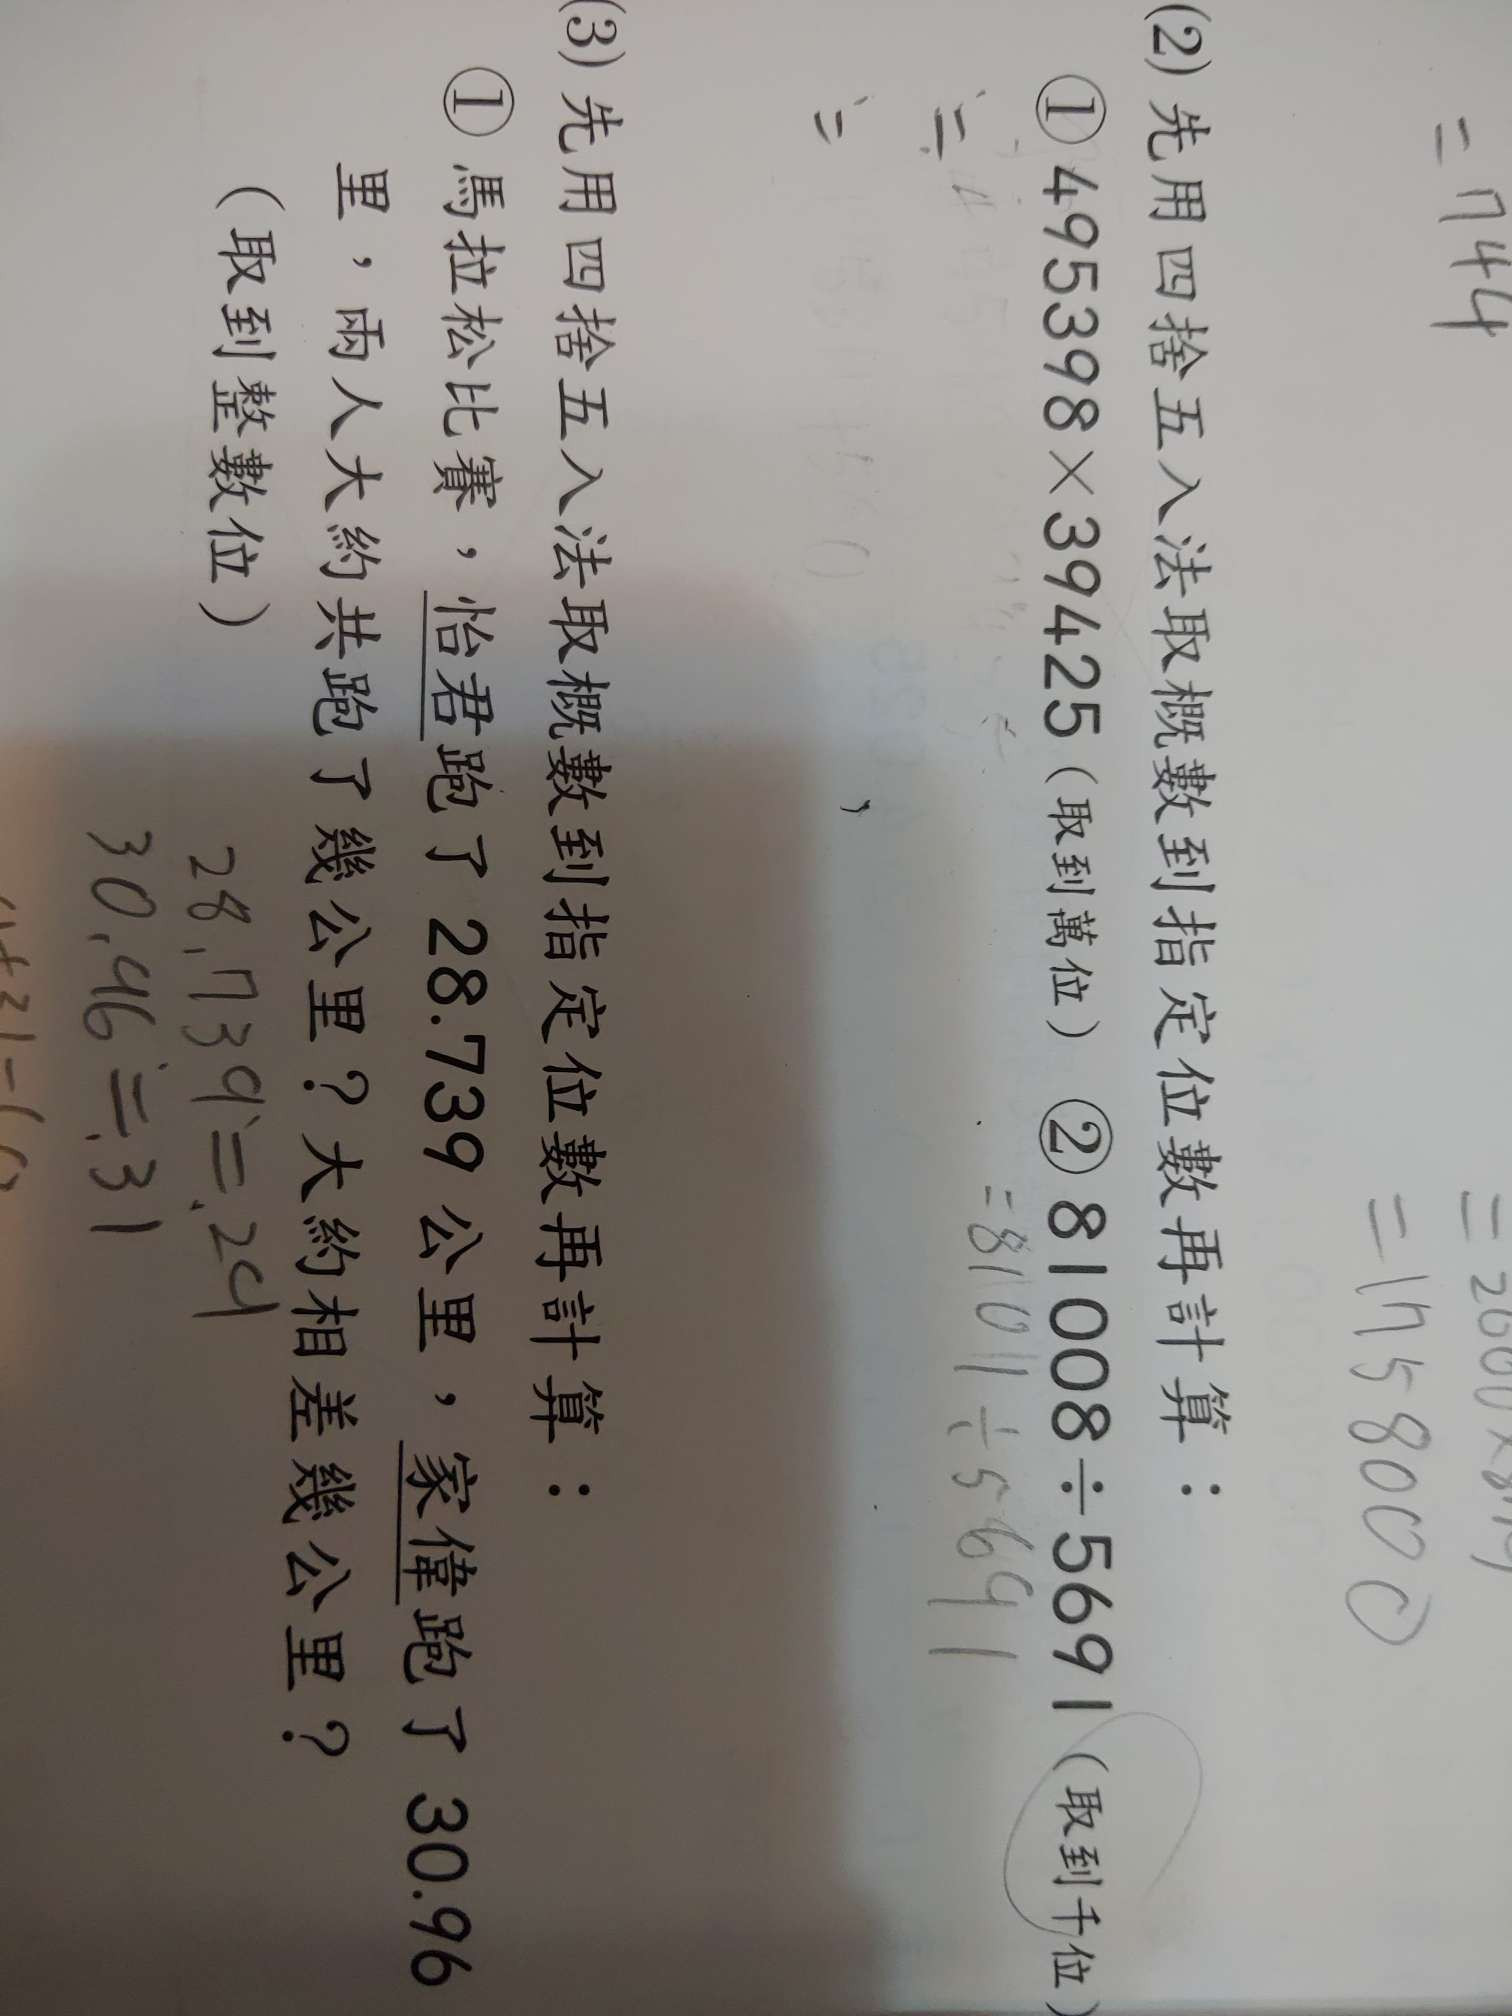 =744
=2600×
=1758000
(2) 先用四捨五入法取概數到指定位數再計算：
① 495398×39425（取到萬位） ② 81008÷5691（取到千位）
≒
=81011÷5691
≒
(3) 先用四捨五入法取概數到指定位數再計算：
① 馬拉松比賽，怡君跑了 28.739 公里，家偉跑了 30.96
里，兩人大約共跑了幾公里？大約相差幾公里？
（取到整數位）
28.739≒29
30.96≒31